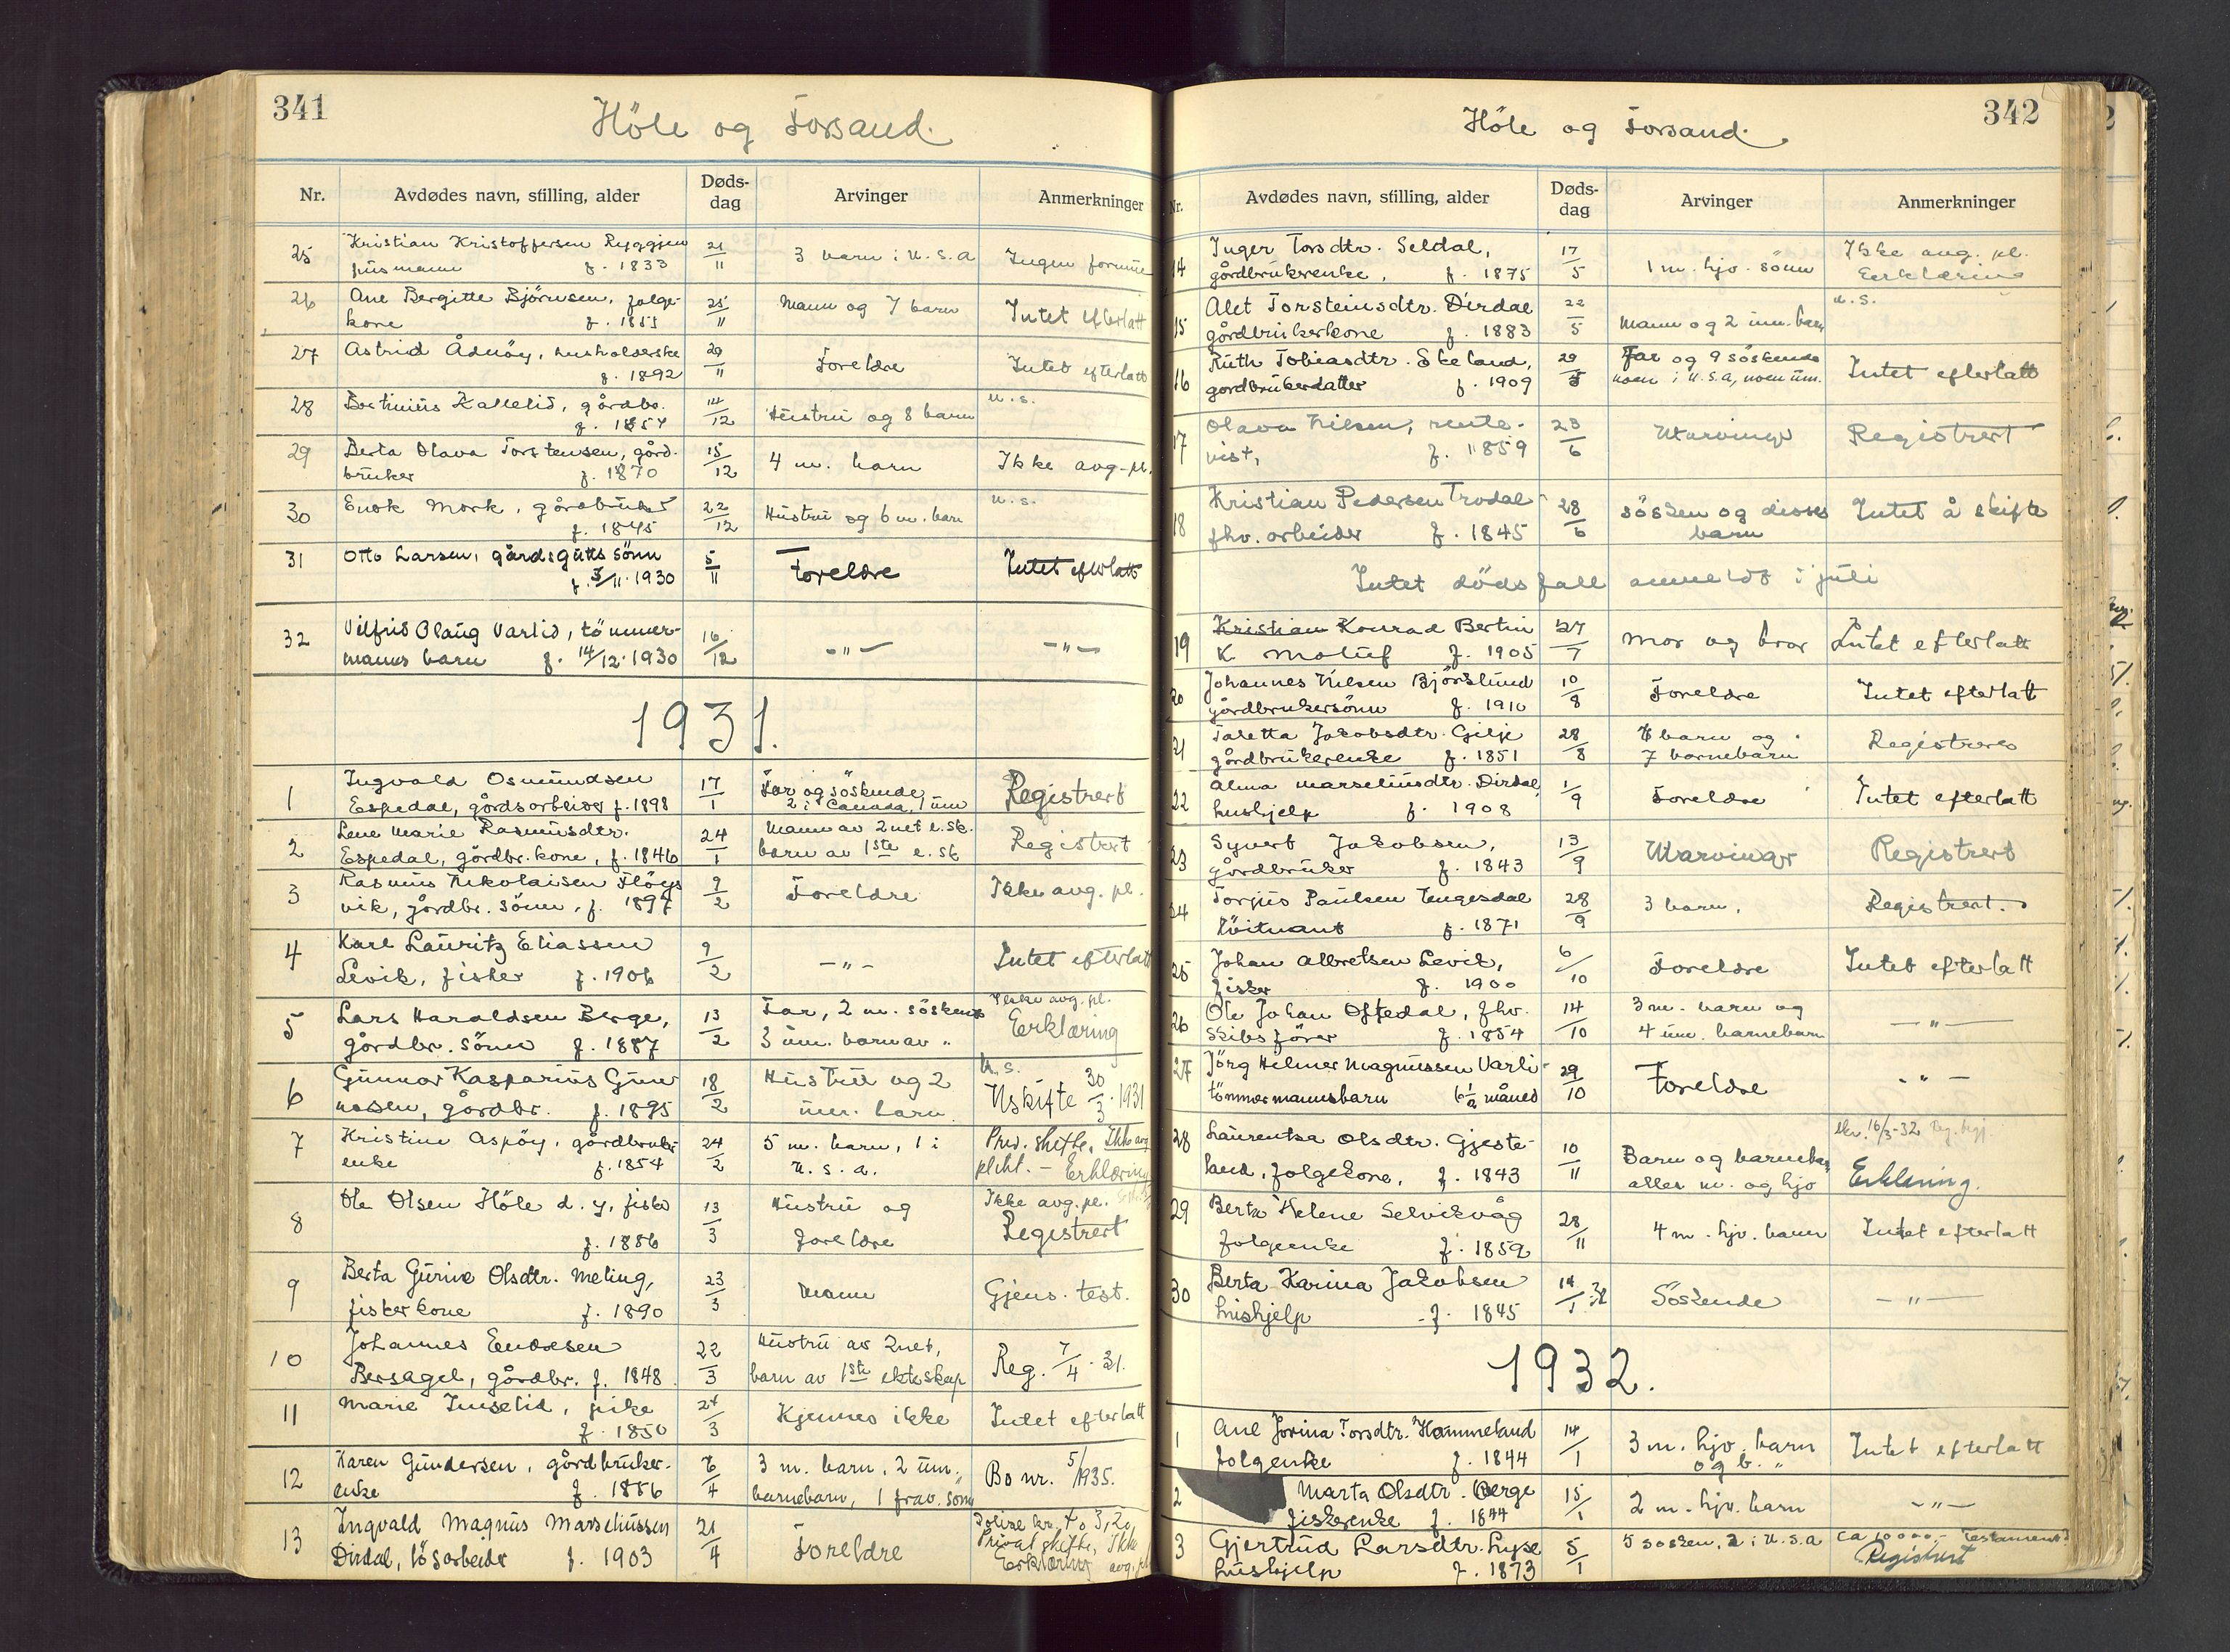 341
Höle og Forsand.
Nr. Avdødes navn, stilling, alder Døds-dag Arvinger Anmerkninger
25 Kristian Kristoffersen 21/11 3 barn i U.S.A Ingen formue
f. 1833
26 Ane Bergitte Björnsen, folge- 25/11 Mann og 7 barn Intet efterlatt
kone f. 1855
27 Astrid Ådnöy, husholderske 29/11 Foreldre Intet efterlatt
f. 1892
28 Kallelid, gårdbr. 14/12 Hustru og 8 barn U.S.
f. 1857
29 Berta Olava Torstensen, gård- 15/12 4 m. barn Ikke avg.-pl.
bruker f. 1870
30 Enok Mork, gårdbruker 22/12 Hustru og 6 m. barn U.S.
f. 1845
31 Otto Larsen, gårdsgutts sönn 5/11 Foreldre Intet efterlatt
f. 3/11 1930
32 Vilfrid Olaug Varlid, tömmer- 16/12 -"- -"-
manns barn f. 14/12 1930
1931.
1 Ingvald Osmundsen 17/1 Far og söskende, Registrert
Espedal, gårdsarbeider f. 1898 2 i Canada, 1 um
2 Lene Marie Rasmusdtr. 24/1 Mann av 2net e.sk. Registrert
Espedal, gårdbr. kone, f. 1846 barn av 1ste e.sk
3 Rasmus Nikolaisen Flöys- 9/2 Foreldre Ikke avg. pl.
vik, gårdbr. sönn, f. 1897
4 Karl Lauritz Eliassen 9/2 -"- Intet efterlatt
Levik, fisker f. 1906
5 Lars Haraldsen Berge, 13/2 Far, 2 m. söskende Ikke avg. pl.
gårdbr. sönn f. 1887 3 um. barn av " Erklæring
6 Gunnar Kasparius Gun- 18/2 Hustru og 2 U.S.
nassen, gårdbr. f. 1895 um. barn Uskifte 30/3 1931
7 Kristine Aspöy, gårdbruker- 24/2 5 m. barn, 1 i Priv. skifte, Ikke avg
enke f. 1854 U.S.A. plikt. - Erklæring
8 Ole Olsen Höle d.y, fisker 13/3 Hustru og Ikke avg. pl.
f. 1886 foreldre Registrert
9 Berta Gurine Olsdtr. Meling, 23/3 Mann Gjens. test.
fiskerkone f. 1890
10 Johannes Endresen 22/3 Hustru av 2net, Reg. 7/4 31.
Bersagel, gårdbr. f. 1848. barn av 1ste ekteskap
11 Marie Imselid, pike 24/3 Kjennes ikke Intet efterlatt
f. 1850
12 Karen Gundersen, gårdbruker- 6/4 3 m. barn, 2 um. Bo nr. 5/1935.
enke f. 1856 barnebarn, 1 frav. sönn
13 Ingvald Magnus Marseliussen 21/4 Foreldre Privat skifte, Ikke
Dirdal, lösarbeider f. 1903 Erklæring avg. pl
342
Höle og Forsand.
Nr. Avdødes navn, stilling, alder Døds-dag Arvinger Anmerkninger
14 Inger Torsdtr. Seldal, 17/5 1 m. hjv. sönn Ikke avg. pl.
gårdbrukerenke, f. 1875 Erklæring
15 Alet Torsteinsdtr. Dirdal 22/5 Mann og 2 um. barn U.S.
gårdbrukerkone f. 1883
16 Ruth Tobiasdtr. Skeland, 29/5 Far og 9 söskende Intet efterlatt
gårdbrukerdatter f. 1909 noen i U.S.A, noen um.
17 Olava Nilsen, rente- 23/6 Utarvinger Registrert
nist, f. 1859
18 Kristian Pedersen Trodal 28/6 Sösken og disses Intet å skifte
fhv. arbeider f. 1845 barn
Intet dödsfall anmeldt i juli
19 Kristian Konrad Bertin 27/7 Mor og bror Intet efterlatt
K Moluf f. 1905
20 Johannes Nilsen Björslund 10/8 Foreldre Intet efterlatt
gårdbrukersönn f. 1910
21 Taletta Jakobsdtr. Gilje 28/8 8 barn og Registreres
gårdbrukerenke f. 1851 7 barnebarn
22 Alma Marseliusdtr. Dirdal, 1/9 Foreldre Intet efterlatt
hushjelp f. 1908
23 Syvert Jakobsen, 13/9 Utarvinger Registrert
gårdbruker f. 1843
24 Torjus Paulsen Engesdal 28/9 3 barn, Registrert.
Löitnant f. 1871
25 Johan Albretsen Levik, 6/10 Foreldre Intet efterlatt
fisker f. 1900
26 Ole Johan Oftedal, fhv. 14/10 3 m. barn og -"-
skibsförer f. 1854 4 um. barnebarn
27 Jörg Helmer Magnussen Varli- 29/10 Foreldre -"-
tömmermannsbarn 6 1/2 måned
28 Laurentsa Olsdtr. Gjeste- 10/11 Barn og barnebarn 16/3-32
land, folgekone, f. 1843 alles m. og hjv Erklæring.
29 Berta Helene Selvikvåg 28/11 4 m. hjv. barn Intet efterlatt
folgeenke f. 1859
30 Berta Karina Jakobsen 14/1 32 Söskende -"-
hushjelp f. 1845
1932.
1 Ane Jorina Torsdtr. Hommeland 14/1 3 m. hjv. barn Intet efterlatt
folgenke f. 1844 og b. "
2 Marta Olsdtr. Berge 15/1 2 m. hjv. barn -"-
fiskerenke f. 1844
3 Gjertrud Larsdtr. Lyse 5/1 5 sosken, 2 i U.S.A ca 10000,- Testament?
hushjelp f. 1873 Registrert